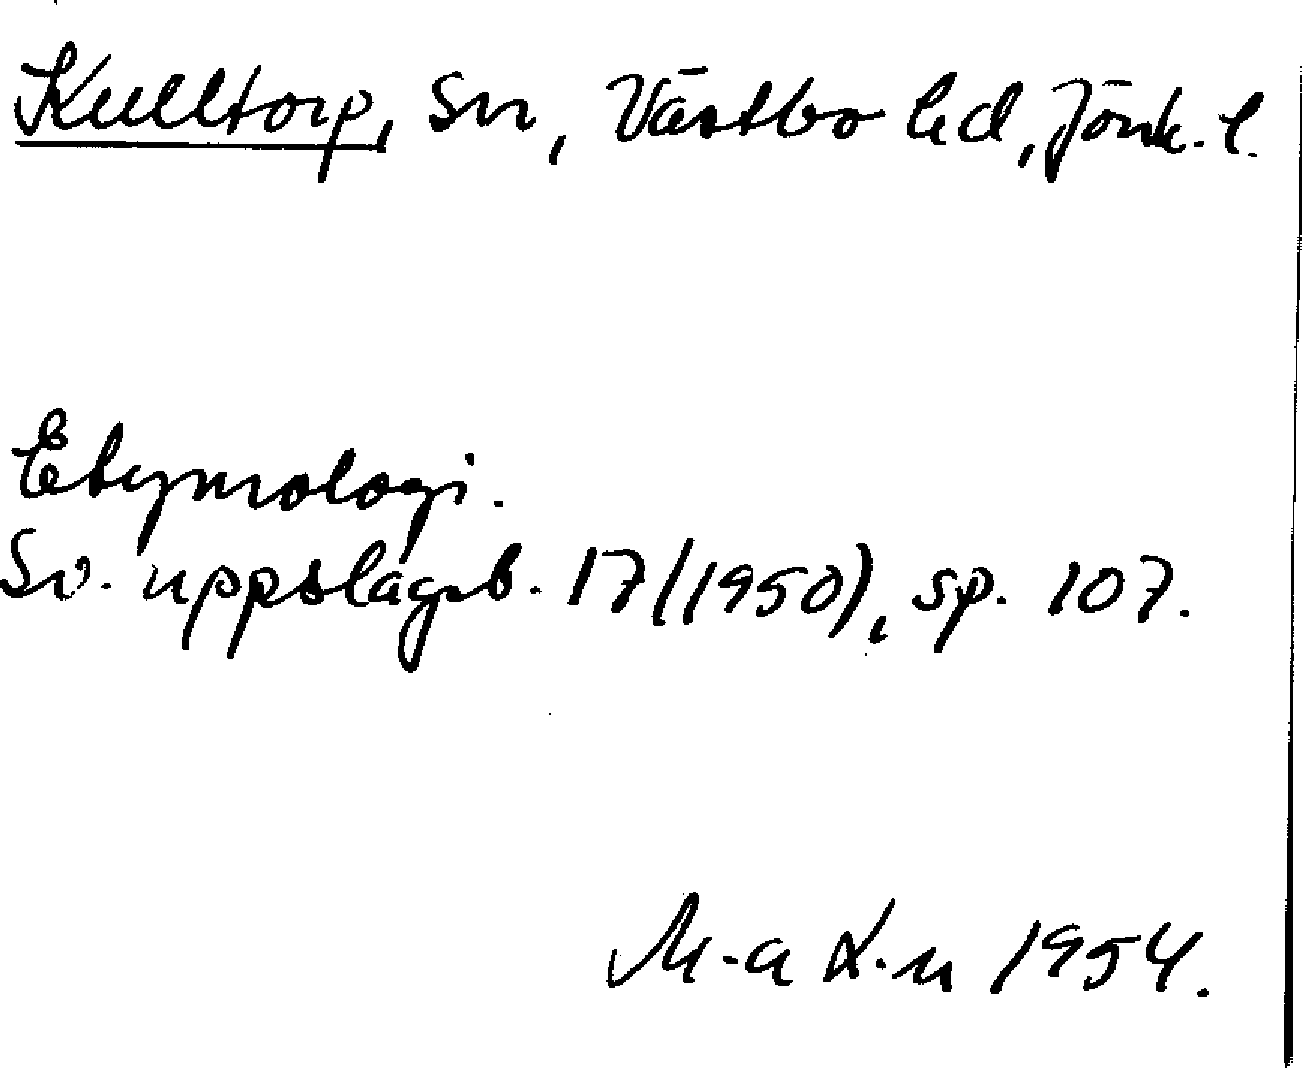 Kulltorp, sn, Västbo hd, Jönk. l.
Etymologi.
Sv. uppslagsb. 17 (1950), sp. 107.
M-a L-n 1954.